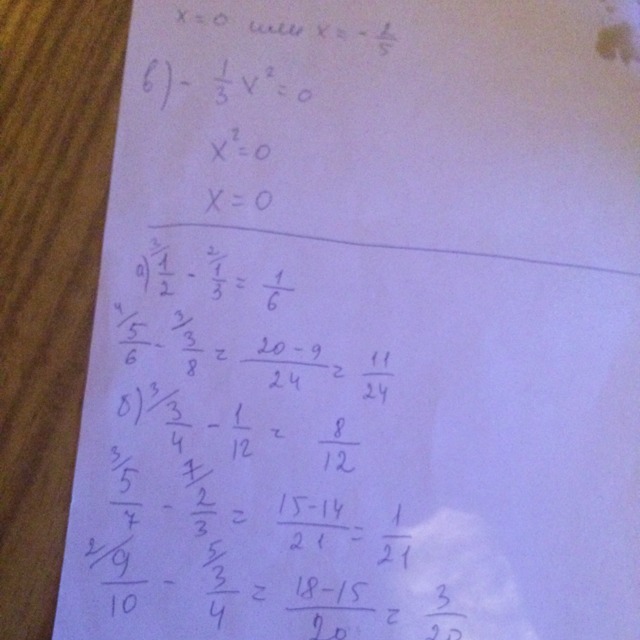 x = 0 или x = -1/5
в) - 1/3 x² = 0
x² = 0
x = 0
а) ³⁄ 1/2 - ²⁄ 1/3 = 1/6
⁴⁄ 5/6 - ³⁄ 3/8 = (20-9)/24 = 11/24
б) ³⁄ 3/4 - 1/12 = 8/12
³⁄ 5/7 - ⁷⁄ 2/3 = (15-14)/21 = 1/21
²⁄ 9/10 - ⁵⁄ 3/4 = (18-15)/20 = 3/20